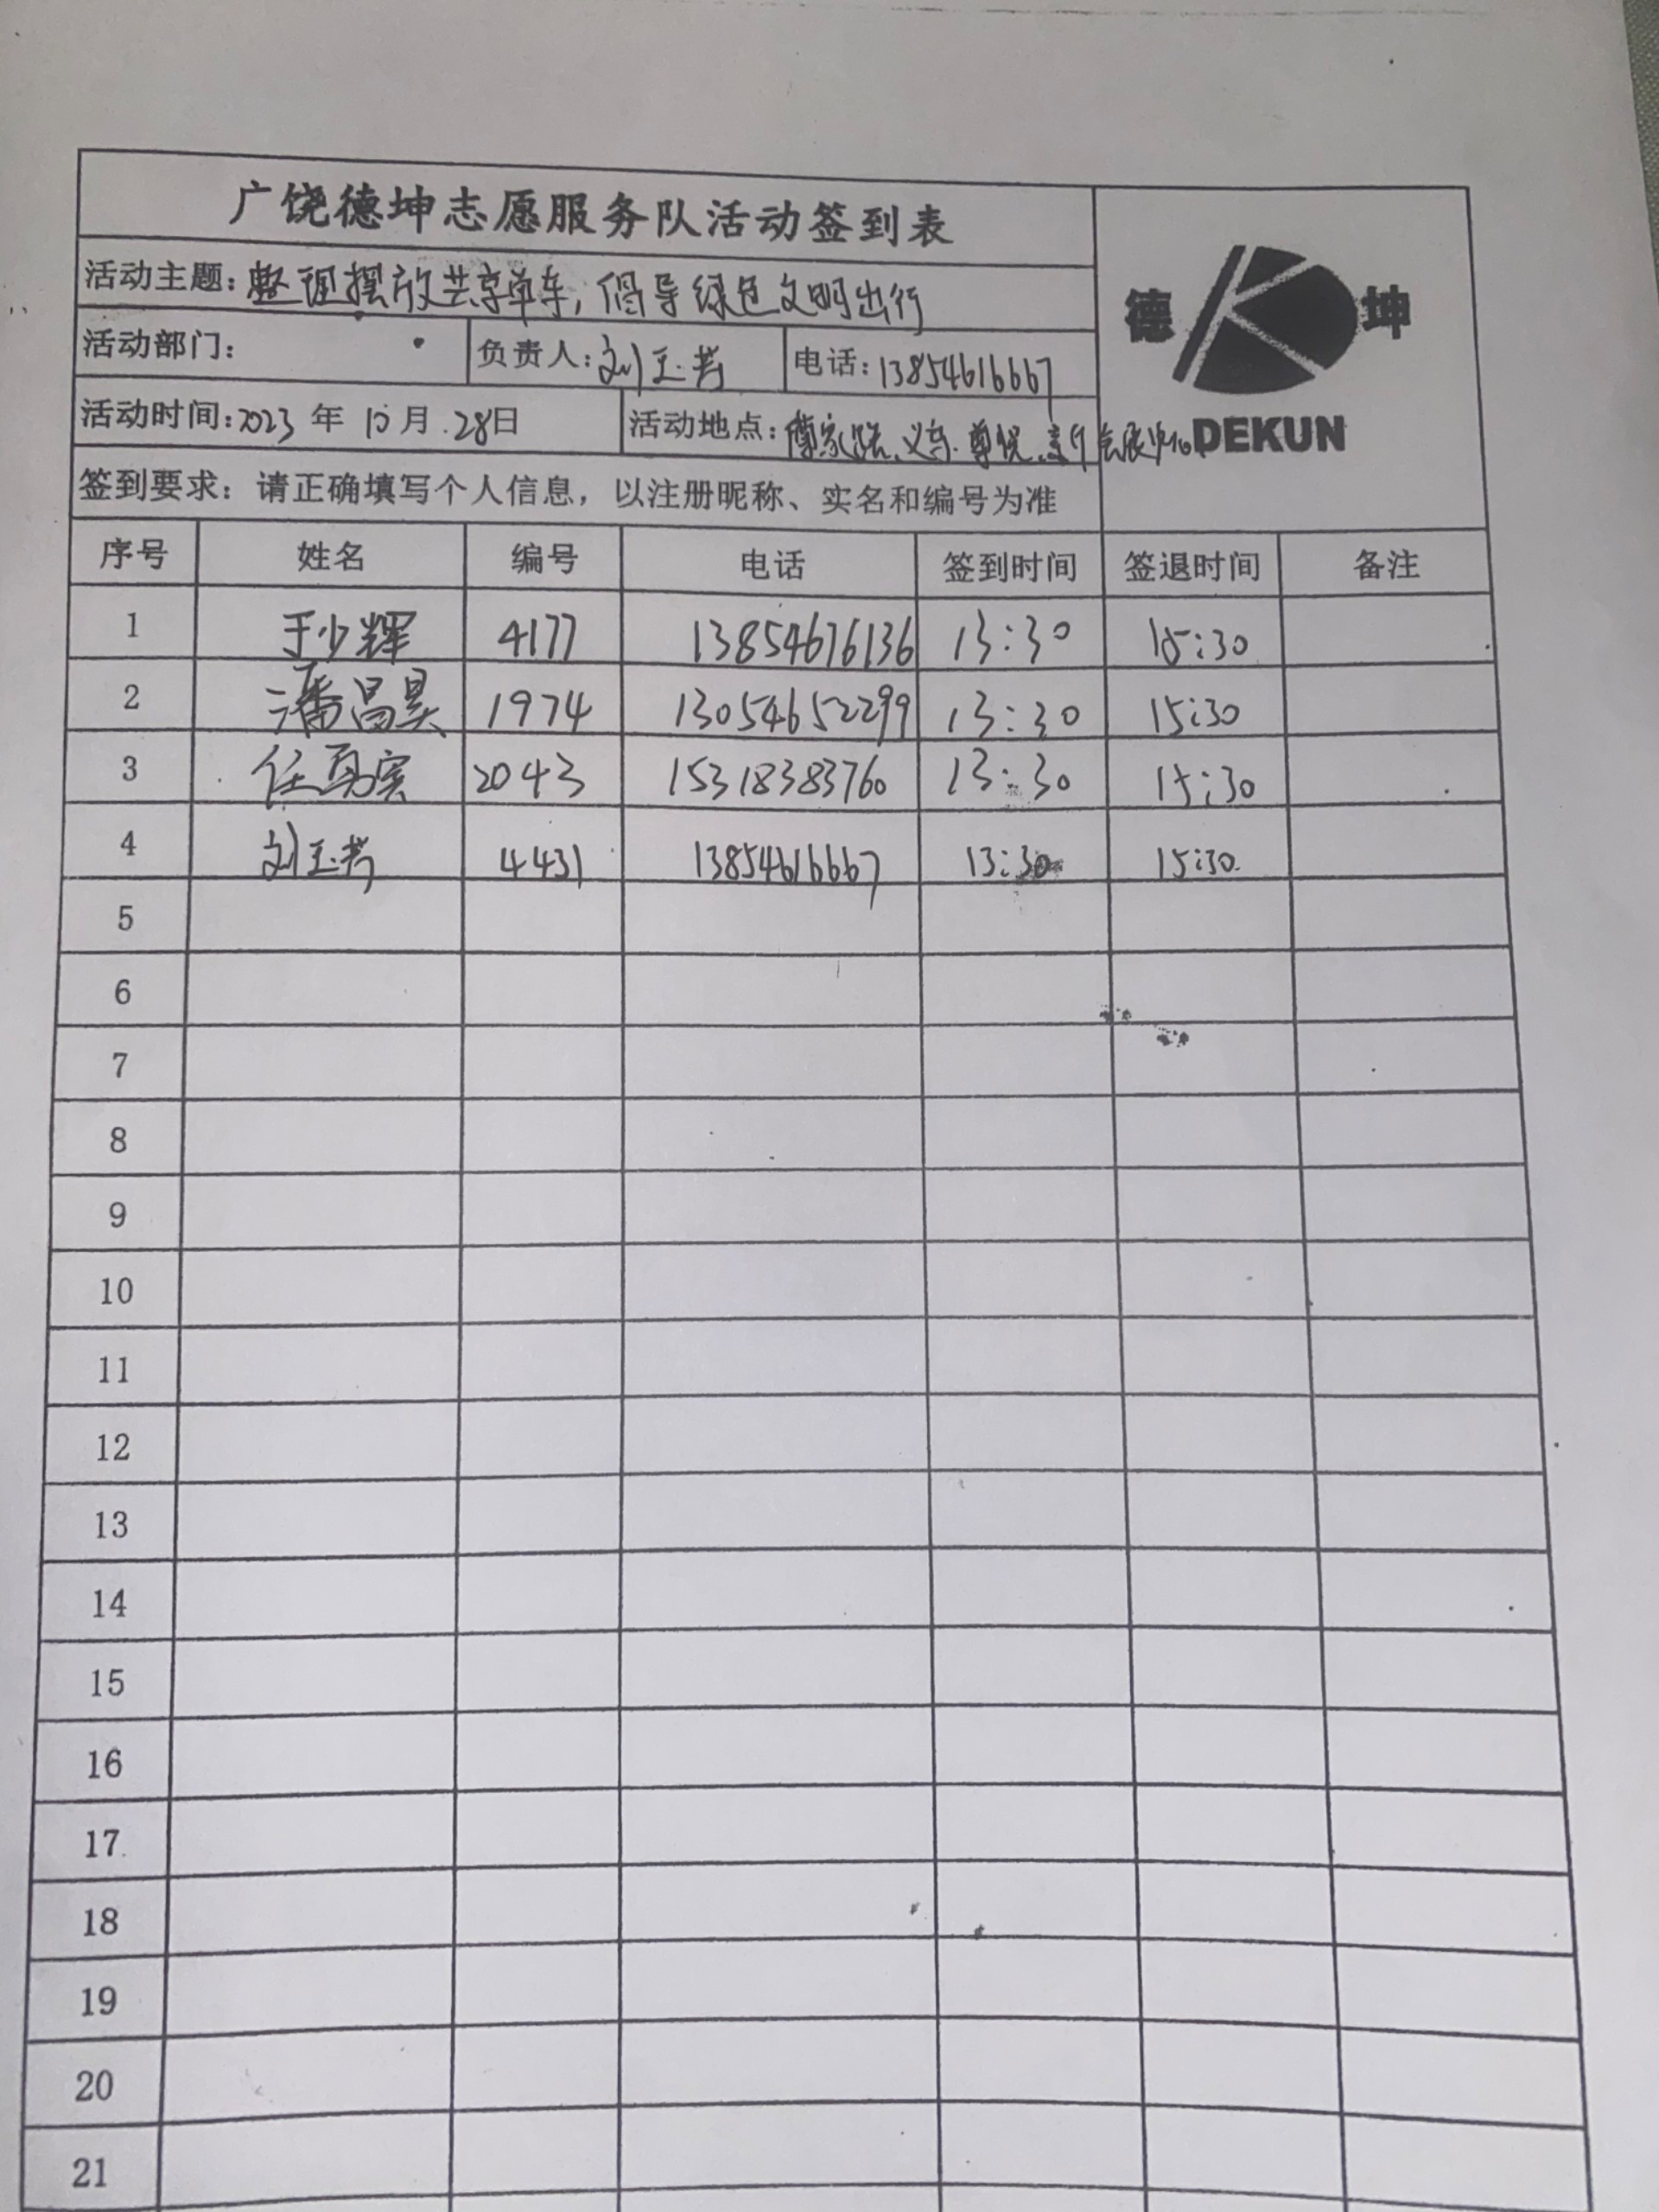 广饶德坤志愿服务队活动签到表
活动主题：整理摆放共享单车，倡导绿色文明出行
德 坤
DEKUN
活动部门： 负责人：刘玉芳 电话：13854616667
活动时间：2023 年 10 月 28日 活动地点：傅家路、义乌、尊悦、
签到要求：请正确填写个人信息，以注册昵称、实名和编号为准
序号 姓名 编号 电话 签到时间 签退时间 备注
1 于少辉 4177 13854676136 13:30 15:30
2 潘昌昊 1974 13054652299 13:30 15:30
3 任 2043 15318383760 13:30 15:30
4 刘玉芳 4431 13854616667 13:30 15:30
5
6
7
8
9
10
11
12
13
14
15
16
17
18
19
20
21